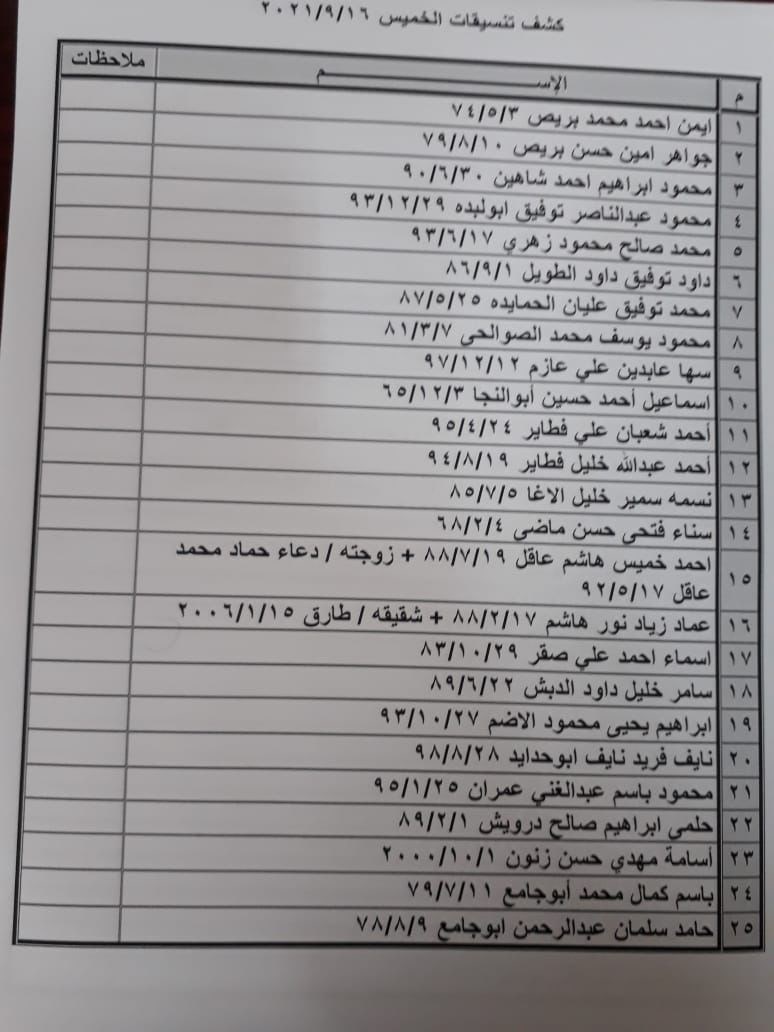 كشف تنسيقات الخميس ٢٠٢١/٩/١٦
م الإســـــــــم ملاحظات
١ ايمن احمد محمد بريص ٧٤/٥/٣
٢ جواهر امين حسن بريص ٧٩/٨/١٠
٣ محمود ابراهيم احمد شاهين ٩٠/٦/٣٠
٤ محمود عبدالناصر توفيق ابولبده ٩٣/١٢/٢٩
٥ محمد صالح محمود زهري ٩٣/٦/١٧
٦ داود توفيق داود الطويل ٨٦/٩/١
٧ محمد توفيق عليان الحمايده ٨٧/٥/٢٥
٨ محمود يوسف محمد الصوالحي ٨١/٣/٧
٩ سها عابدين علي عازم ٩٧/١٢/١٢
١٠ اسماعيل أحمد حسين أبوالنجا ٦٥/١٢/٣
١١ أحمد شعبان علي فطاير ٩٥/٤/٢٤
١٢ أحمد عبدالله خليل فطاير ٩٤/٨/١٩
١٣ نسمه سمير خليل الاغا ٨٥/٧/٥
١٤ سناء فتحى حسن ماضى ٦٨/٢/٤
١٥ احمد خميس هاشم عاقل ٨٨/٧/١٩ + زوجته / دعاء حماد محمد
عاقل ٩٢/٥/١٧
١٦ عماد زياد نور هاشم ٨٨/٢/١٧ + شقيقه / طارق ٢٠٠٦/١/١٥
١٧ اسماء احمد علي صقر ٨٣/١٠/٢٩
١٨ سامر خليل داود الدبش ٨٩/٦/٢٢
١٩ ابراهيم يحيى محمود الاضم ٩٣/١٠/٢٧
٢٠ نايف فريد نايف ابوحدايد ٩٨/٨/٢٨
٢١ محمود باسم عبدالغني عمران ٩٥/١/٢٥
٢٢ حلمي ابراهيم صالح درويش ٨٩/٢/١
٢٣ أسامة مهدي حسن زنون ٢٠٠٠/١٠/١
٢٤ باسم كمال محمد أبوجامع ٧٩/٧/١١
٢٥ حامد سلمان عبدالرحمن ابوجامع ٧٨/٨/٩